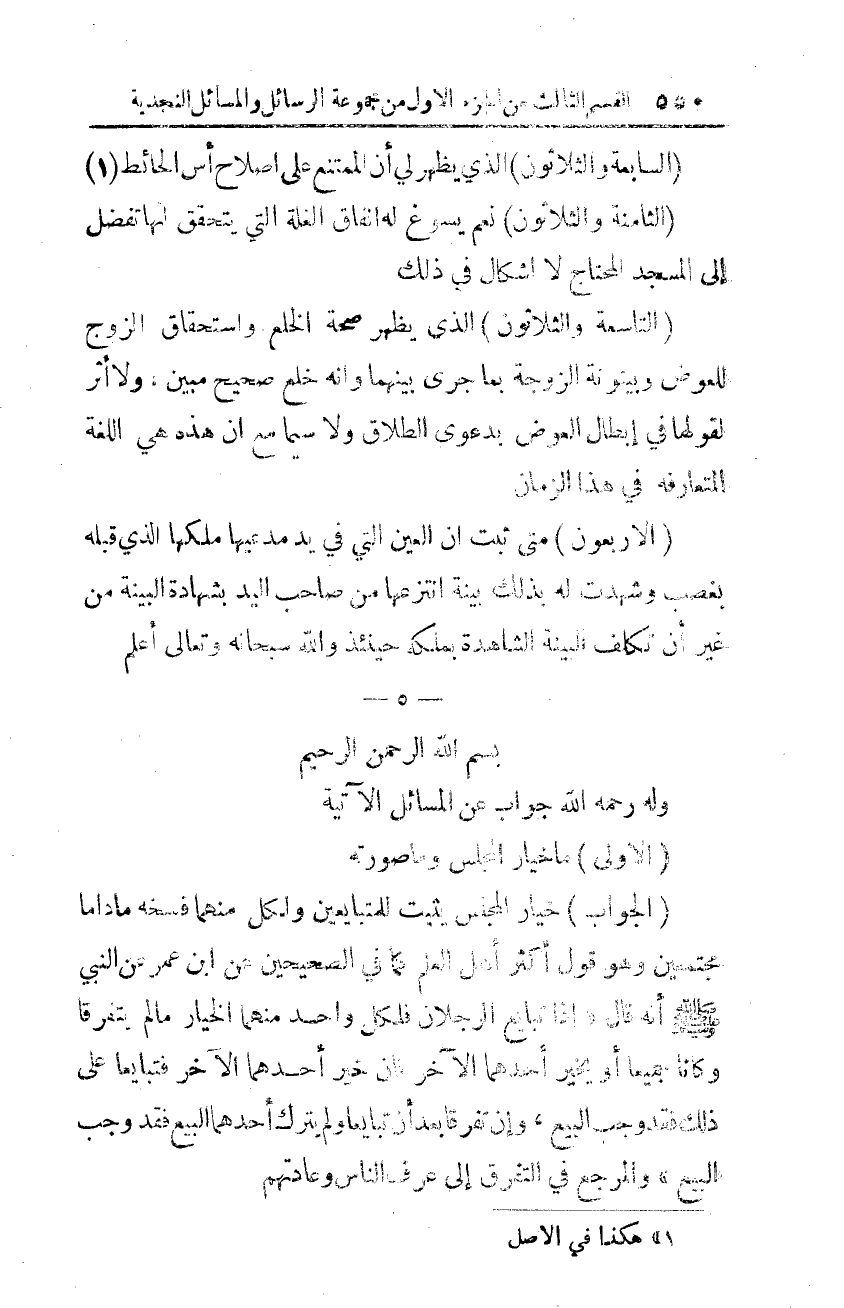 ٥٥٠ القسم الثالث من الجزء الاول من مجموعة الرسائل والمسائل النجدية
(السابعة والثلاثون) الذي يظهر لي أن الممتنع على اصلاح أس الحائط (١)
(الثامنة والثلاثون) نعم يسوغ له انفاق الغلة التي يتحقق انها تفضل
إلى المسجد المحتاج لا اشكال في ذلك
(التاسعة والثلاثون) الذي يظهر صحة الخلع واستحقاق الزوج
للعوض وبينونة الزوجة بما جرى بينهما وانه خلع صحيح مبين، ولا أثر
لقولها في إبطال العوض بدعوى الطلاق ولا سيما مع ان هذه هي اللغة
المتعارفه في هذا الزمان
(الاربعون) متى ثبت ان العين التي في يد مدعيها ملكها الذي قبله
بغصب وشهدت له بذلك بينة انتزعها من صاحب اليد بشهادة البينة من
غير أن تكلف البينة الشاهدة بملكه حينئذ والله سبحانه وتعالى أعلم
— ٥ —
بسم الله الرحمن الرحيم
وله رحمه الله جواب عن المسائل الآتية
(الاولى) ماخيار المجلس وماصورته
(الجواب) خيار المجلس يثبت للمتبايعين ولكل منهما فسخه ماداما
مجتمعين وهو قول أكثر أهل العلم لما في الصحيحين عن ابن عمر عن النبي
ﷺ أنه قال « إذا تبايع الرجلان فلكل واحد منهما الخيار مالم يتفرقا
وكانا جميعا أو يخير أحدهما الآخر فان خير أحدهما الآخر فتبايعا على
ذلك فقد وجب البيع، وإن تفرقا بعد أن تبايعا ولم يترك أحدهما البيع فقد وجب
البيع » والمرجع في التفرق إلى عرف الناس وعادتهم
«١» هكذا في الاصل